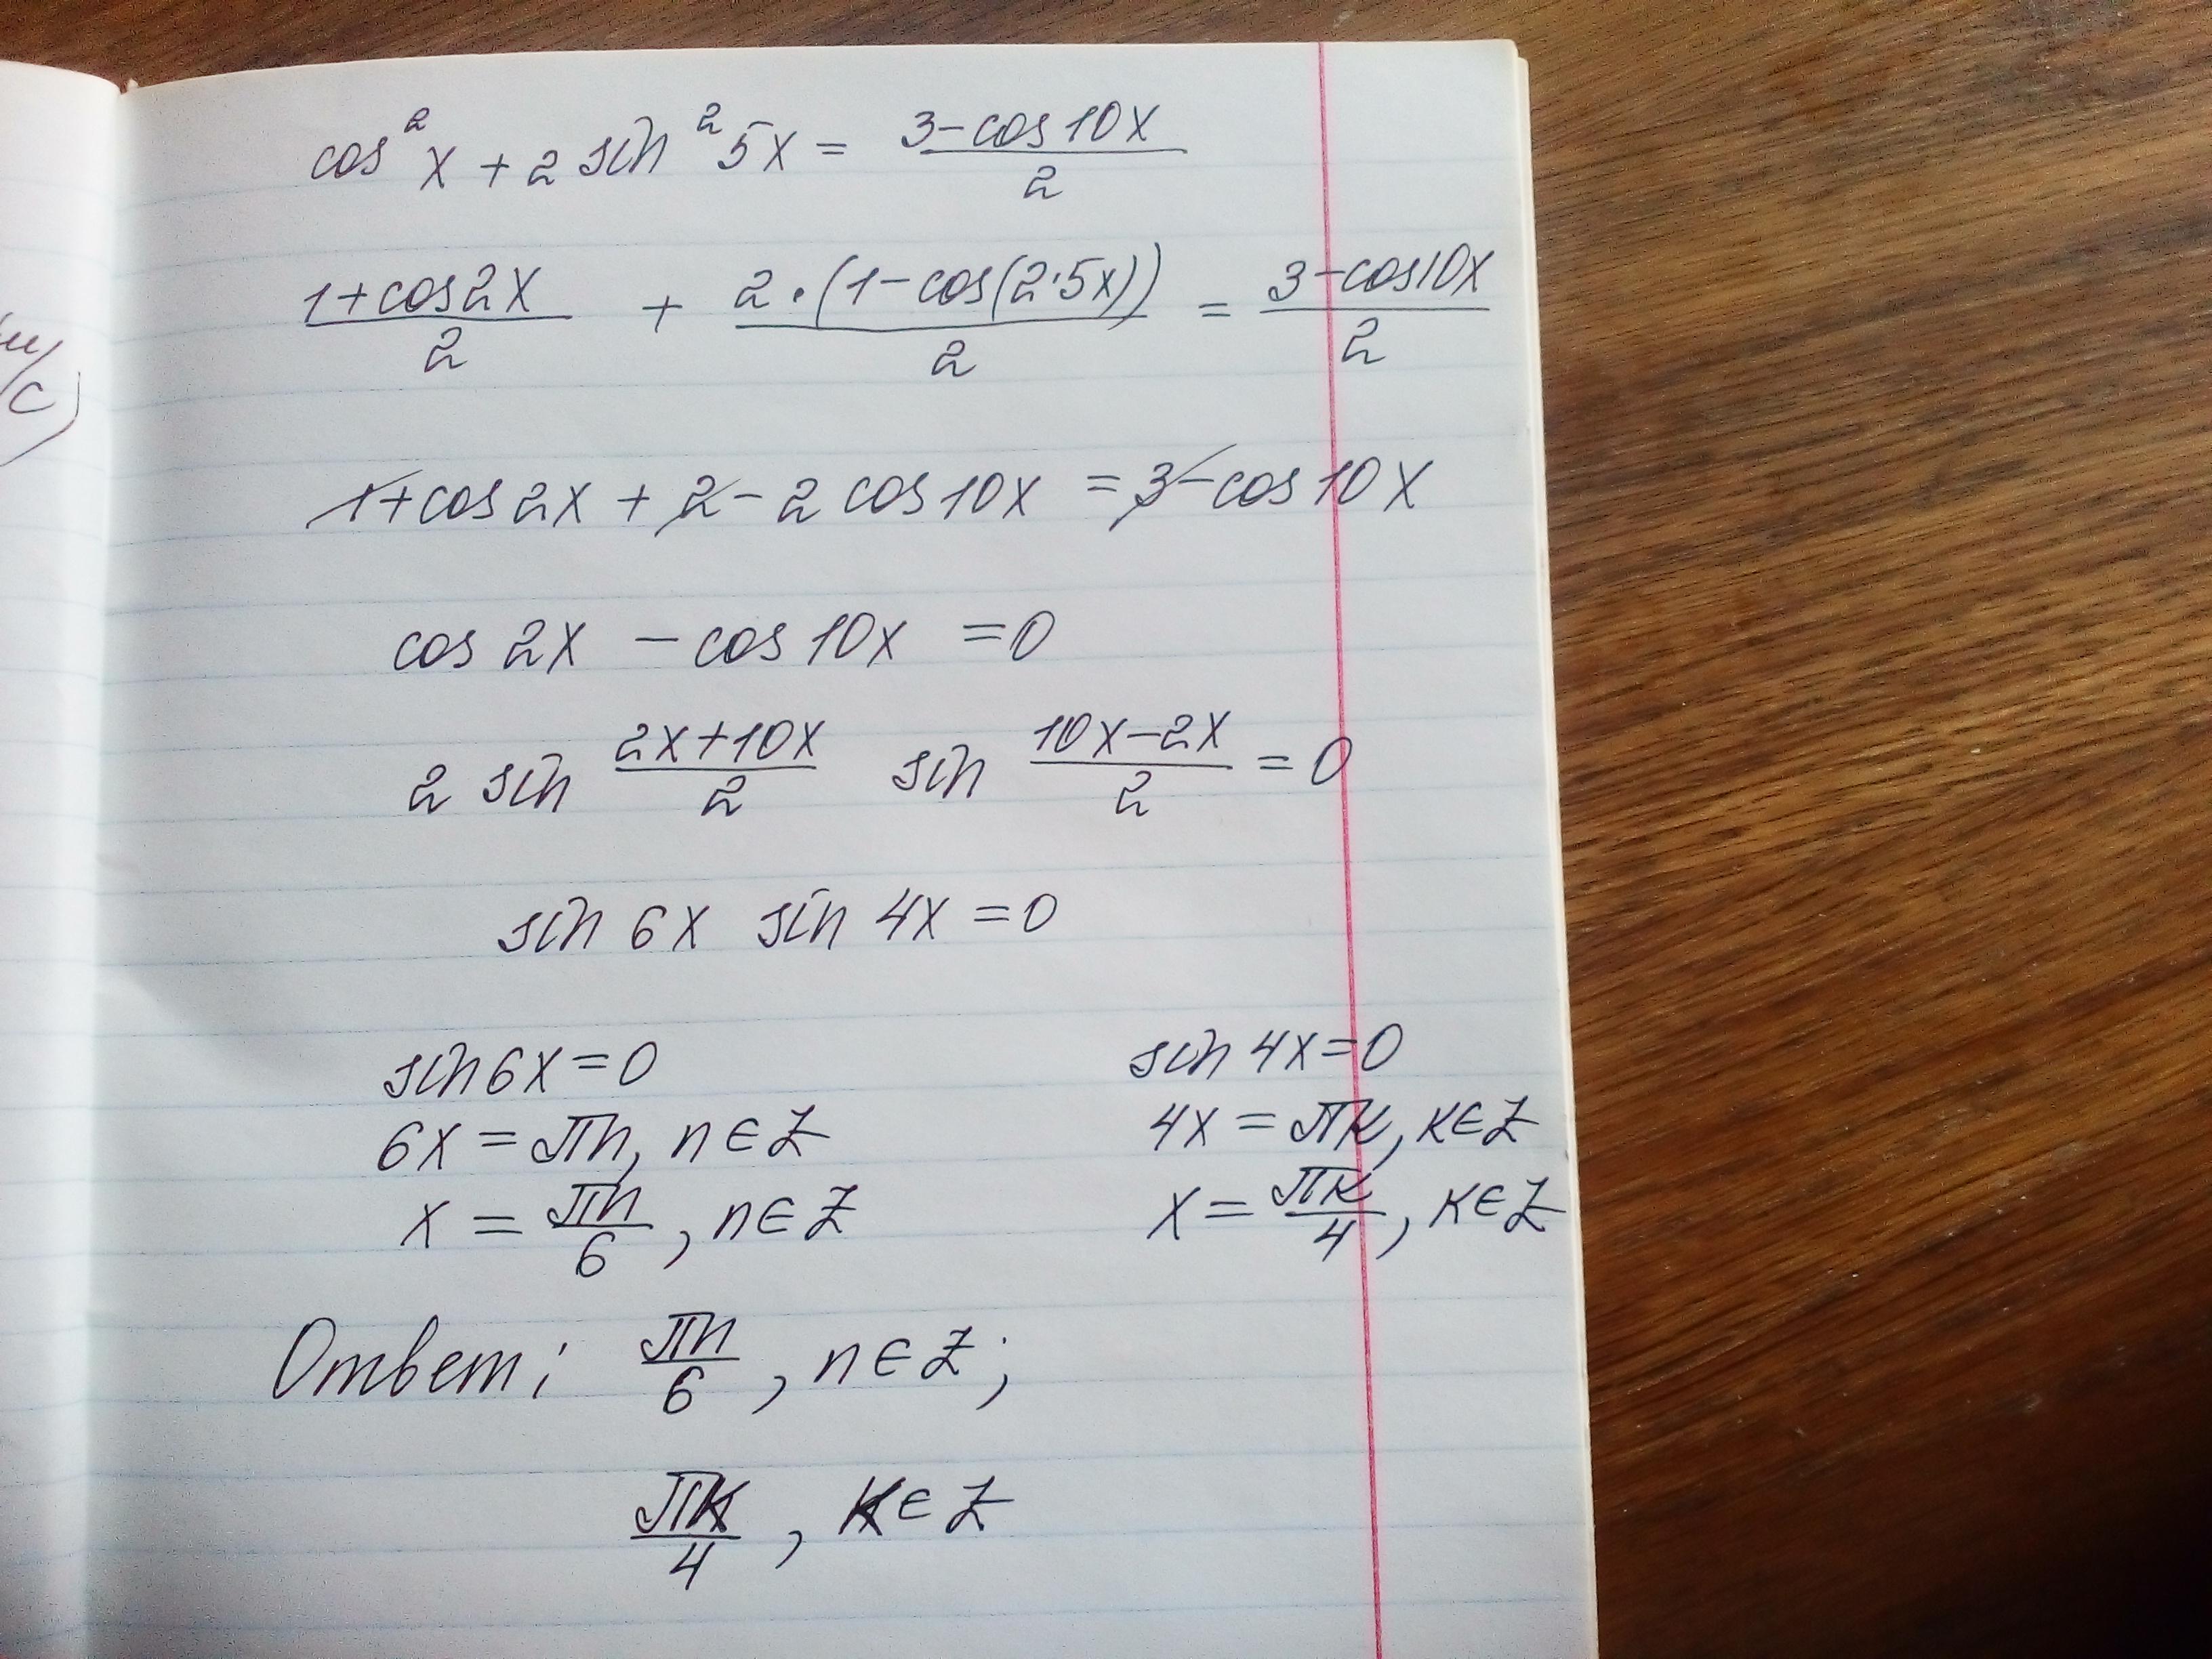 cos²x + 2 sin²5x = (3-cos10x)/2
(1+cos2x)/2 + (2·(1-cos(2·5x)))/2 = (3-cos10x)/2
1+cos2x + 2 - 2cos10x = 3-cos10x
cos2x - cos10x = 0
2 sin (2x+10x)/2 sin (10x-2x)/2 = 0
sin6x sin4x = 0
sin6x = 0 sin4x = 0
6x = πn, n∈Z 4x = πк, к∈Z
x = πn/6, n∈Z x = πк/4, к∈Z
Ответ: πn/6, n∈Z;
πк/4, к∈Z
м/с)